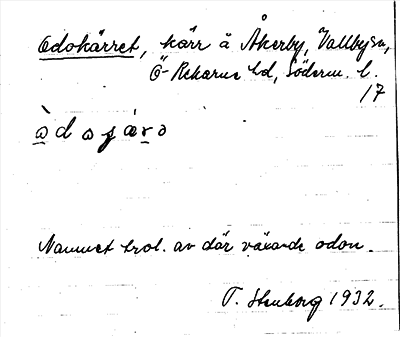 Odokärret, kärr ä Åkerby, Vallby sn,
Ö-Rekarne hd, Söderm. l.
17
Namnet trol. av där växande odon.
T. Stenborg 1932.